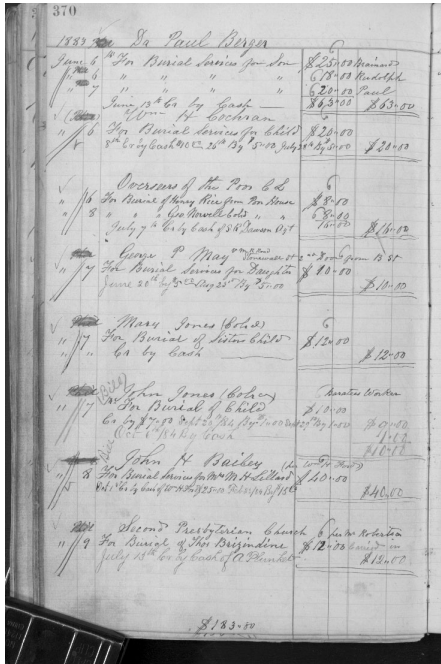 370
1883 Dr Paul Berger
June 6 For Burial Services for Son $25-00 Brainard
" 6 " " " " 6 18-00 Rudolph
" 7 " " " " 6 20-00 Paul
June 13th Cr by Cash — $63-00 $63-00
Wm H Cochran
" 6 For Burial Services for Child $20-00
8th Cr by Cash $10 25th By $5-00 July By 5-00 $20-00
Overseers of the Poor C L 6
" 6 For Burial of Henry Rice from Poor House $8-00
" 8 " " Geo Newell Cold " " 6 8-00
July 7th Cr by Cash of S R Dawson Agt 16-00 $16-00
George P May
" 7 For Burial Services for Daughter $10-00
June 20th By $5 Aug 25th By $5-00 $10-00
Mary Jones (Cold) 6
" 7 For Burial of Sisters Child $12-00
" Cr by Cash $12-00
(Bill) John Jones (Colored) Baraties Worker
" 7 For Burial of Child $10-00
Cr by $7-00 Sept 20th 84 By 1-00 By 1-00 9-00
Oct 6th 84 By Cash 1-00
$10-00
John H Bailey
" 8 For Burial Services for Mrs M H Lillard $40-00
$40-00
Second Presbyterian Church 6 per Mr Robertson
" 9 For Burial of Thos Brizindine $12-00 buried in
July 13th Cr by Cash of A Plunket $12-00
$183-00